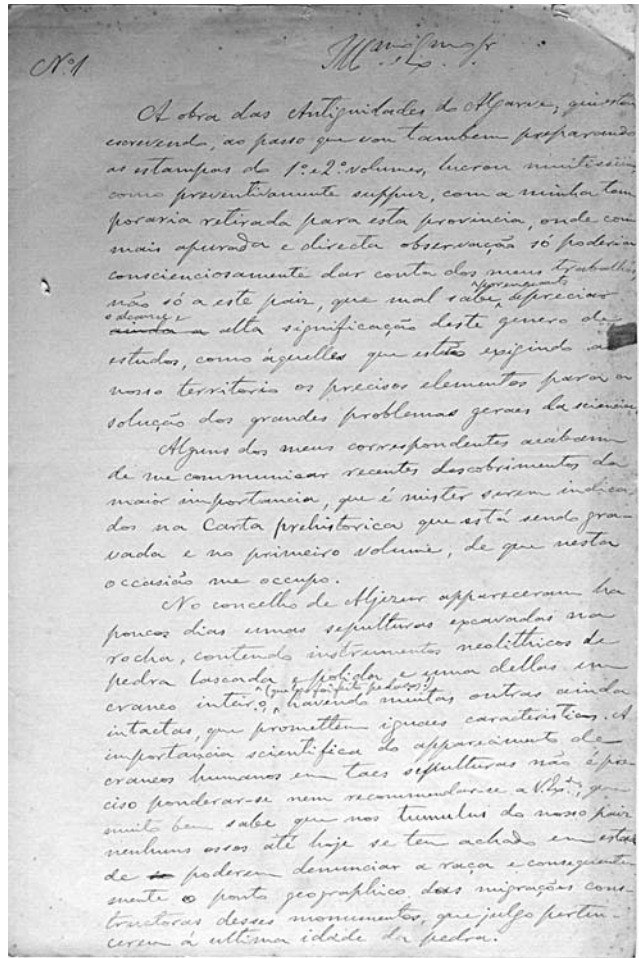 Nº 1
Illmo Exmo Sr
A obra das Antiguidades do Algarve, que estou
escrevendo, ao passo que vou tambem preparando
as estampas do 1º e 2º volumes, lucrou muitissimo,
como preventivamente suppuz, com a minha tem
poraria retirada para esta provincia, onde com
mais apurada e directa observação só poderia
conscienciosamente dar conta dos meus trabalhos
não só a este paiz, que mal sabe depreciar
o alcance e
ainda a alta significação deste genero de
estudos, como áquelles que estão exigindo ao
nosso territorio os precisos elementos para a
solução dos grandes problemas geraes da sciencia.
Alguns dos meus correspondentes acabam
de me communicar recentes descobrimentos da
maior importancia, que é mister serem indica
dos na Carta prehistorica que está sendo gra-
vada e no primeiro volume, de que nesta
occasião me occupo.
No concelho de Aljezur appareceram ha
poucos dias umas sepulturas excavadas na
rocha, contendo instrumentos neolithicos de
pedra lascada e polida, e uma dellas um
(que foi feito pedaços!)
craneo inteiro, havendo muitas outras ainda
intactas, que promettem iguaes caracteristicos. A
importancia scientifica do apparecimento de
craneos humanos em taes sepulturas não é pre
ciso ponderar-se nem recommendar-se a V. Exª, que
muito bem sabe que nos tumulus do nosso paiz
nenhuns ossos até hoje se tem achado em estado
de poderem denunciar a raça e consequente
mente o ponto geographico das migrações cons-
tructoras desses monumentos, que julgo perten-
cerem á ultima idade da pedra.